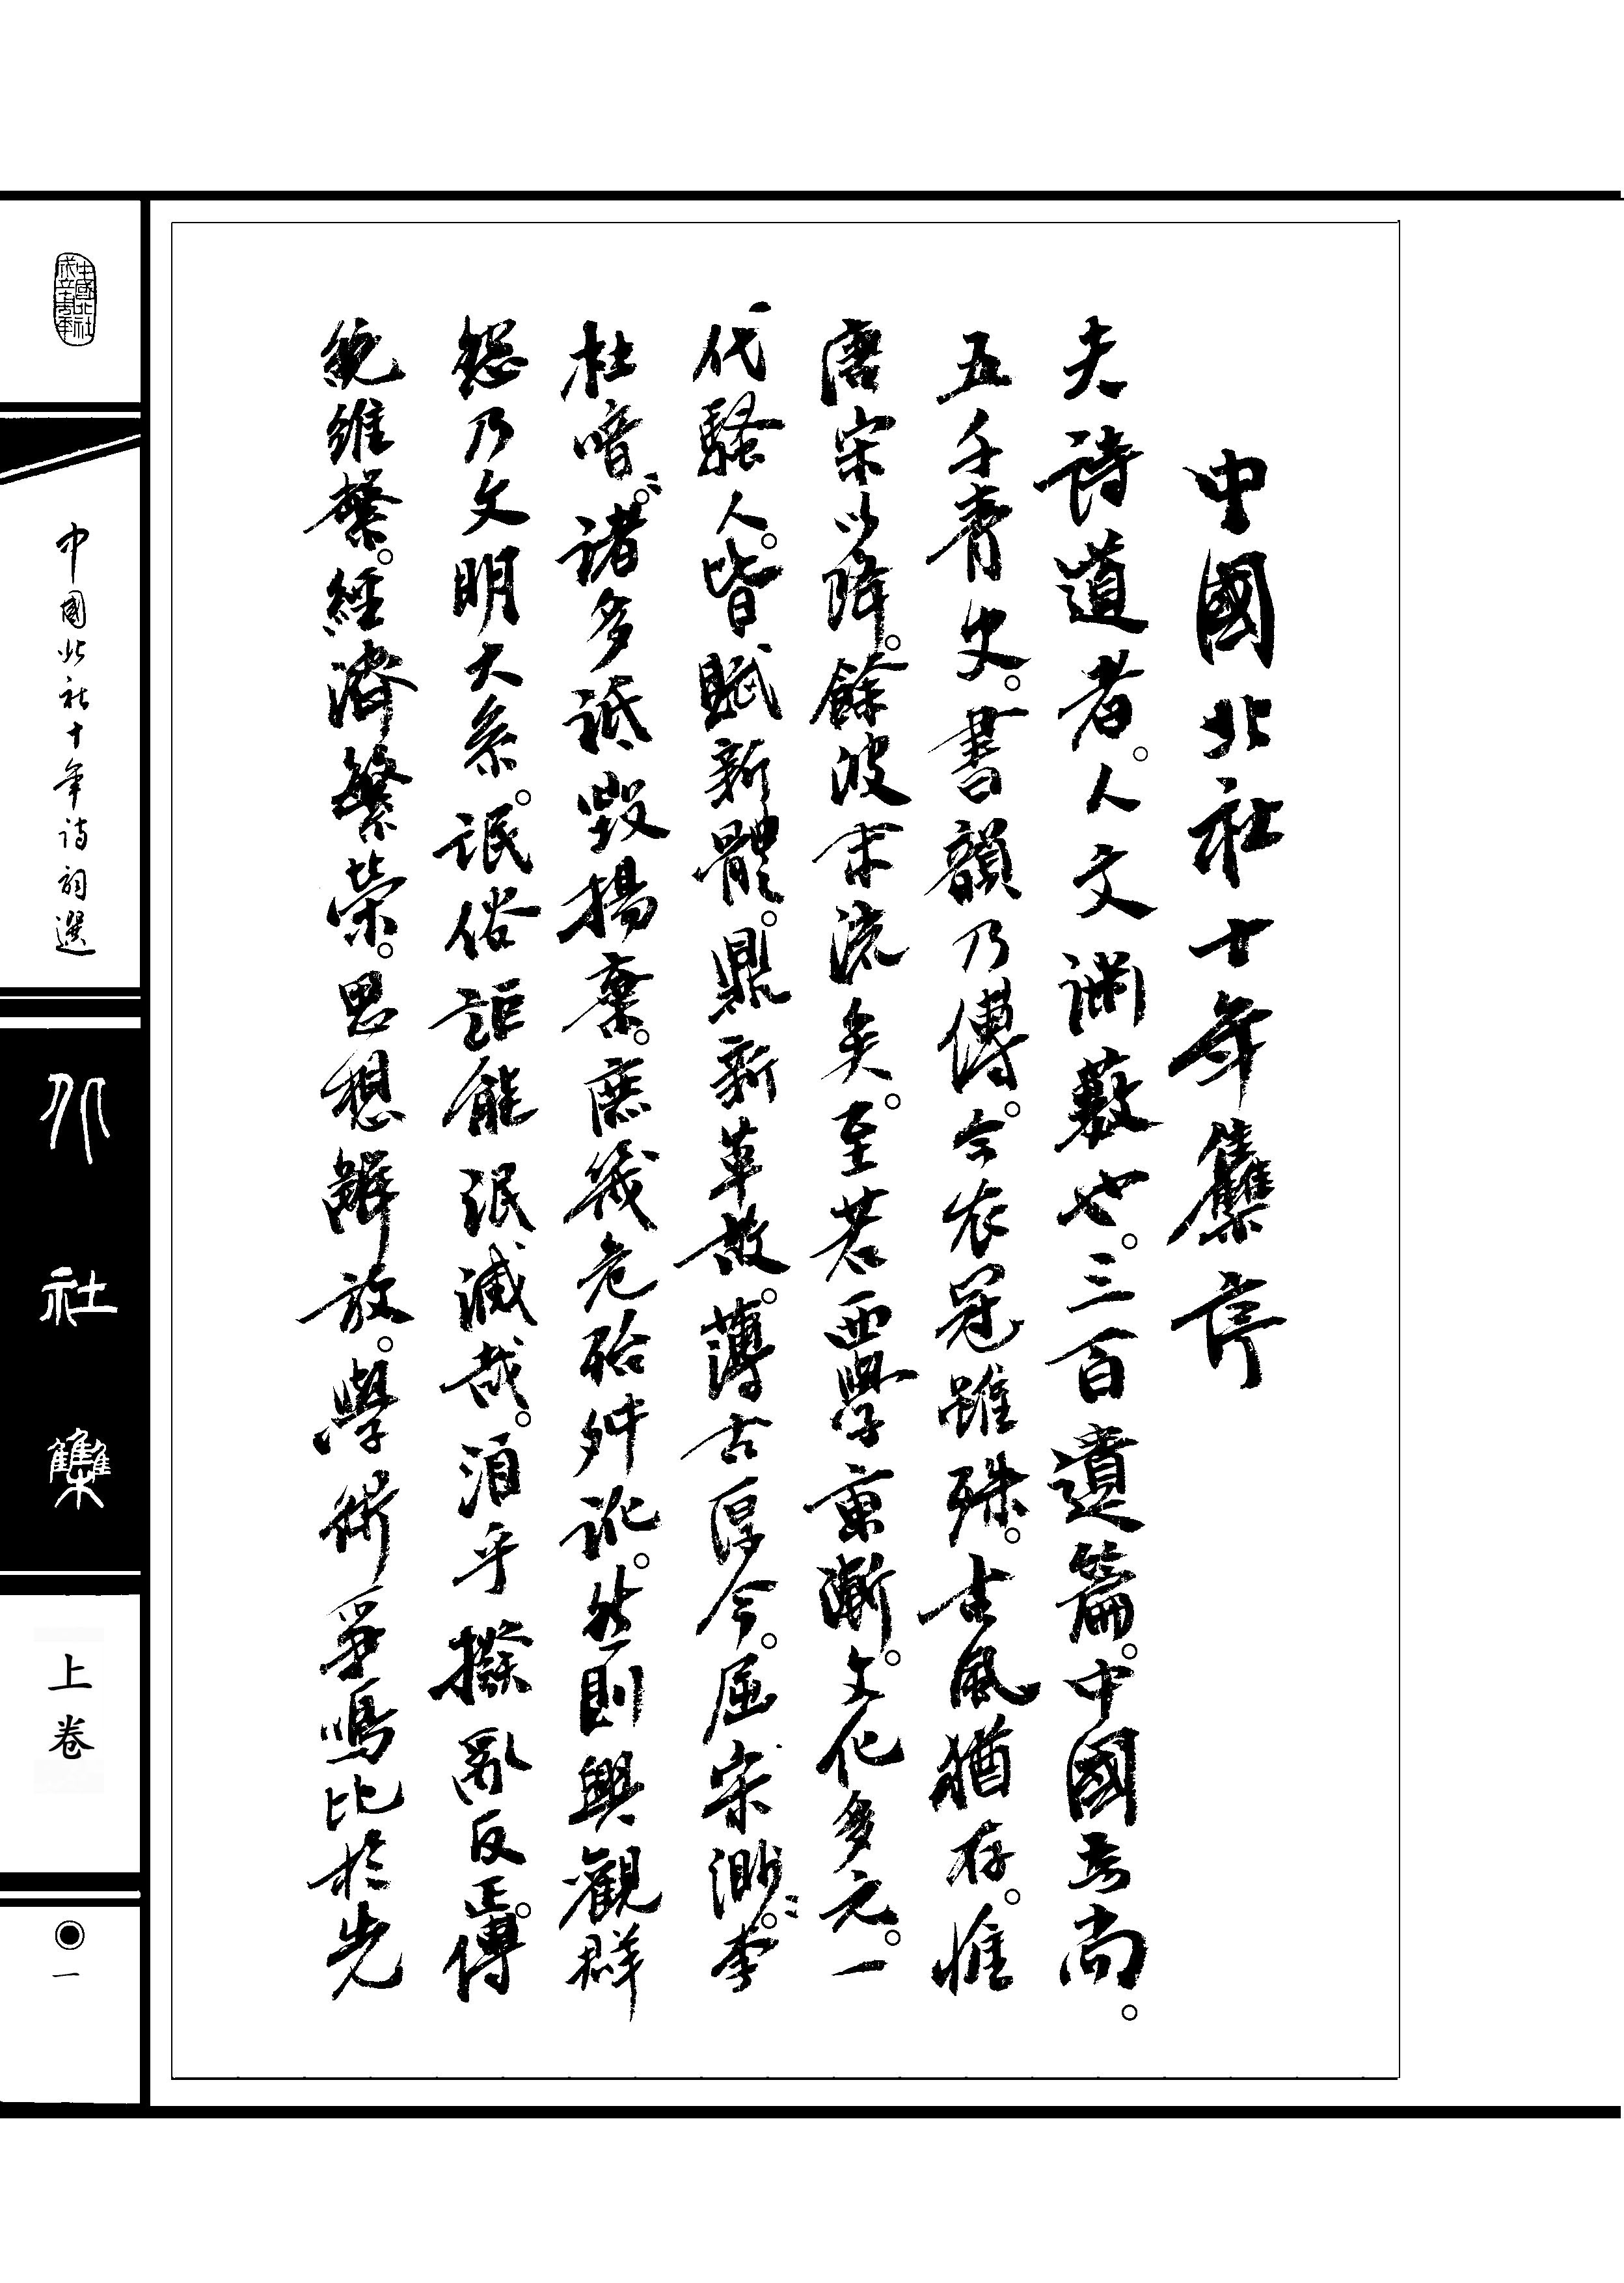 中國北社十年雧序
夫詩道者。人文淵藪也。三百遺篇。中國與尚。
五千青史。書韻乃傳。今衣冠雖殊。古風猶存。惟
唐宋以降。餘波末流矣。至若西學東漸。文化多元。一
代騷人。皆賦新體。鼎新革故。薄古厚今。屈宋渺〻。李
杜喑〻。諸多詆毀揚棄。庶幾危殆舛訛。然則興觀群
怨乃文明大系。氓俗詎能泯滅哉。洎乎撥亂反正。傳
統維繫。經濟繁榮。思想解放。學術爭鳴。比於先
中國北社
成立十周年
中國北社十年詩詞選
北社雧
上卷
一